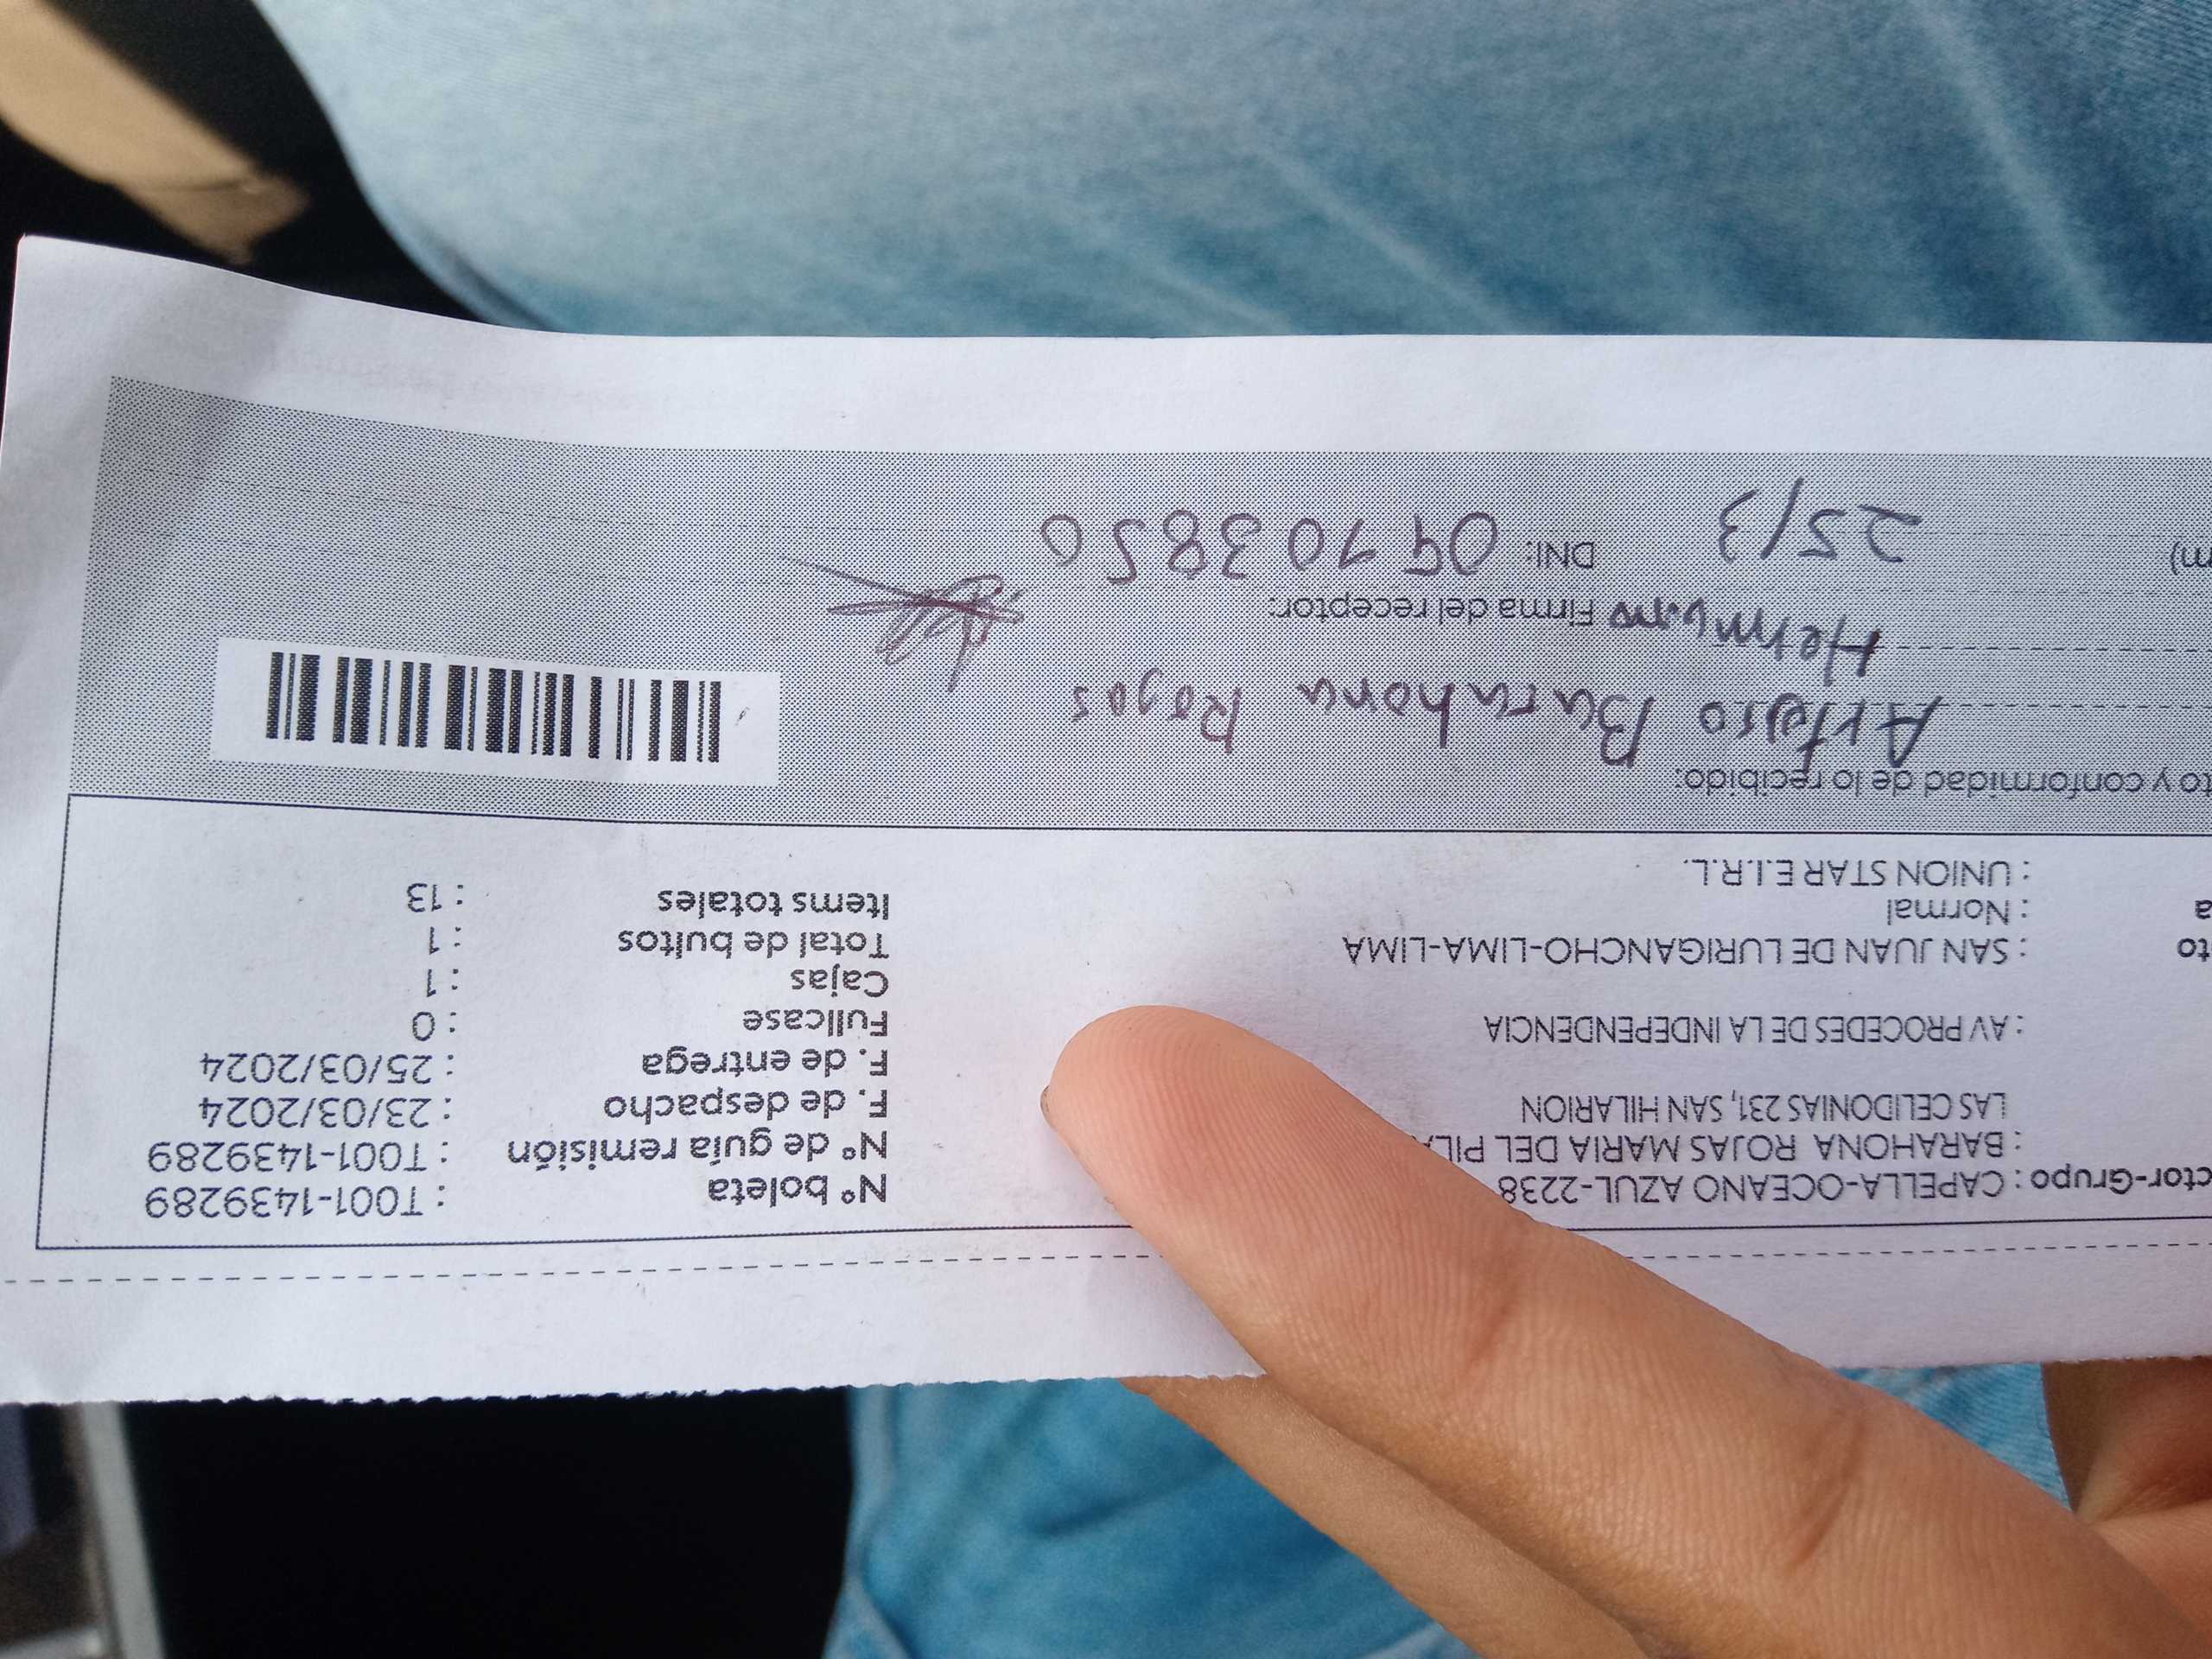 ctor-Grupo : CAPELLA-OCEANO AZUL-2238
: BARAHONA ROJAS MARIA DEL PILA
LAS CELIDONIAS 231, SAN HILARION
: AV PROCEDES DE LA INDEPENDENCIA
to : SAN JUAN DE LURIGANCHO-LIMA-LIMA
a : Normal
: UNION STAR E.I.R.L.
N° boleta : T001-1439289
N° de guía remisión : T001-1439289
F. de despacho : 23/03/2024
F. de entrega : 25/03/2024
Fullcase : 0
Cajas : 1
Total de bultos : 1
Items totales : 13
to y conformidad de lo recibido:
Barahona Rojas
Firma del receptor:
m) 25/3 DNI: 09703850